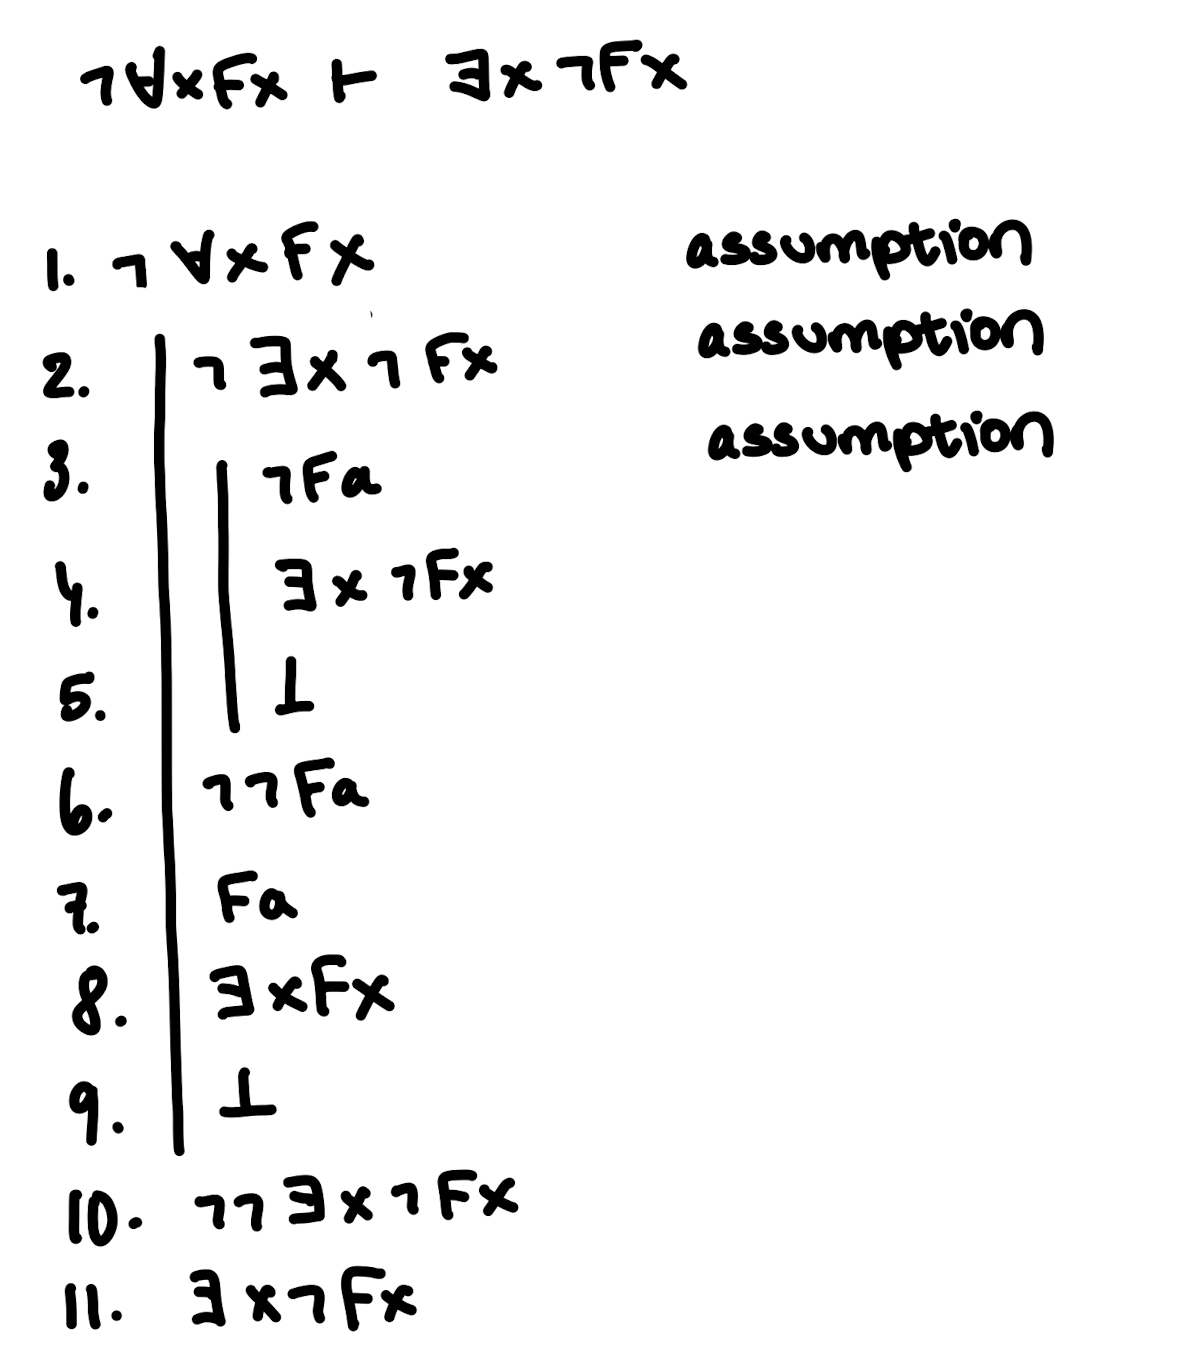 ¬∀xFx ⊢ ∃x¬Fx
1. ¬∀xFx assumption
2. ¬∃x¬Fx assumption
3. ¬Fa assumption
4. ∃x¬Fx
5. ⊥
6. ¬¬Fa
7. Fa
8. ∃xFx
9. ⊥
10. ¬¬∃x¬Fx
11. ∃x¬Fx